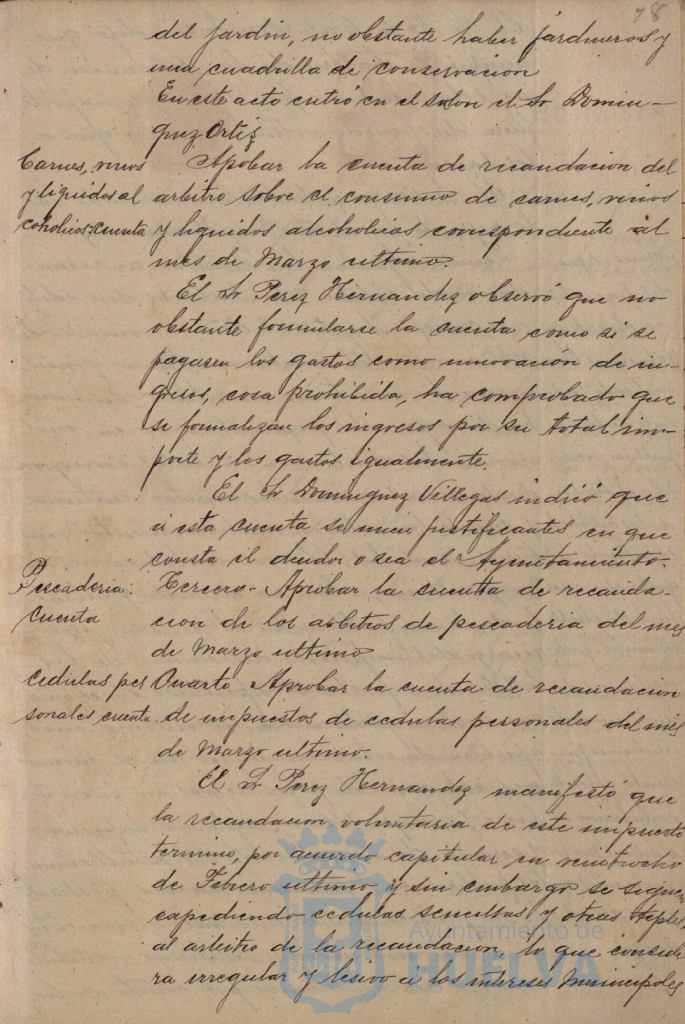 78
del jardin, no obstante haber jardineros y
una cuadrilla de conservacion
En este acto entró en el salon el Sr Domin-
guez Ortiz
Carnes, vinos
y liquidos al
coholicos: cuenta
Aprobar la cuenta de recaudacion del
arbitro sobre el consumo de carnes, vinos
y liquidos alcoholicos correspondiente al
mes de Marzo ultimo.
El Sr Perez Hernandez observó que no
obstante formularse la cuenta como si se
pagasen los gastos como minoración de in-
gresos, cosa prohibida, ha comprobado que
se formalizan los ingresos por su total im-
porte y los gastos igualmente.
El Sr Dominguez Villegas indicó que
á esta cuenta se unen justificantes en que
consta el deudor o sea el Ayuntamiento.
Pescaderia:
Cuenta
Tercero- Aprobar la cuenta de recauda-
cion de los arbitros de pescaderia del mes
de Marzo ultimo
Cedulas per
sonales cuenta
Cuarto Aprobar la cuenta de recaudacion
de impuestos de cedulas personales del mes
de Marzo ultimo.
El Sr Perez Hernandez manifestó que
la recaudacion voluntaria de este impuesto
termino, por acuerdo capitular en veintiocho
de Febrero ultimo y sin embargo se siguen
expidiendo cedulas sencillas y otras
al arbitro de la recaudacion, lo que conside
ra irregular y lesivo á los intereses Municipales
Ayuntamiento de
HUELVA